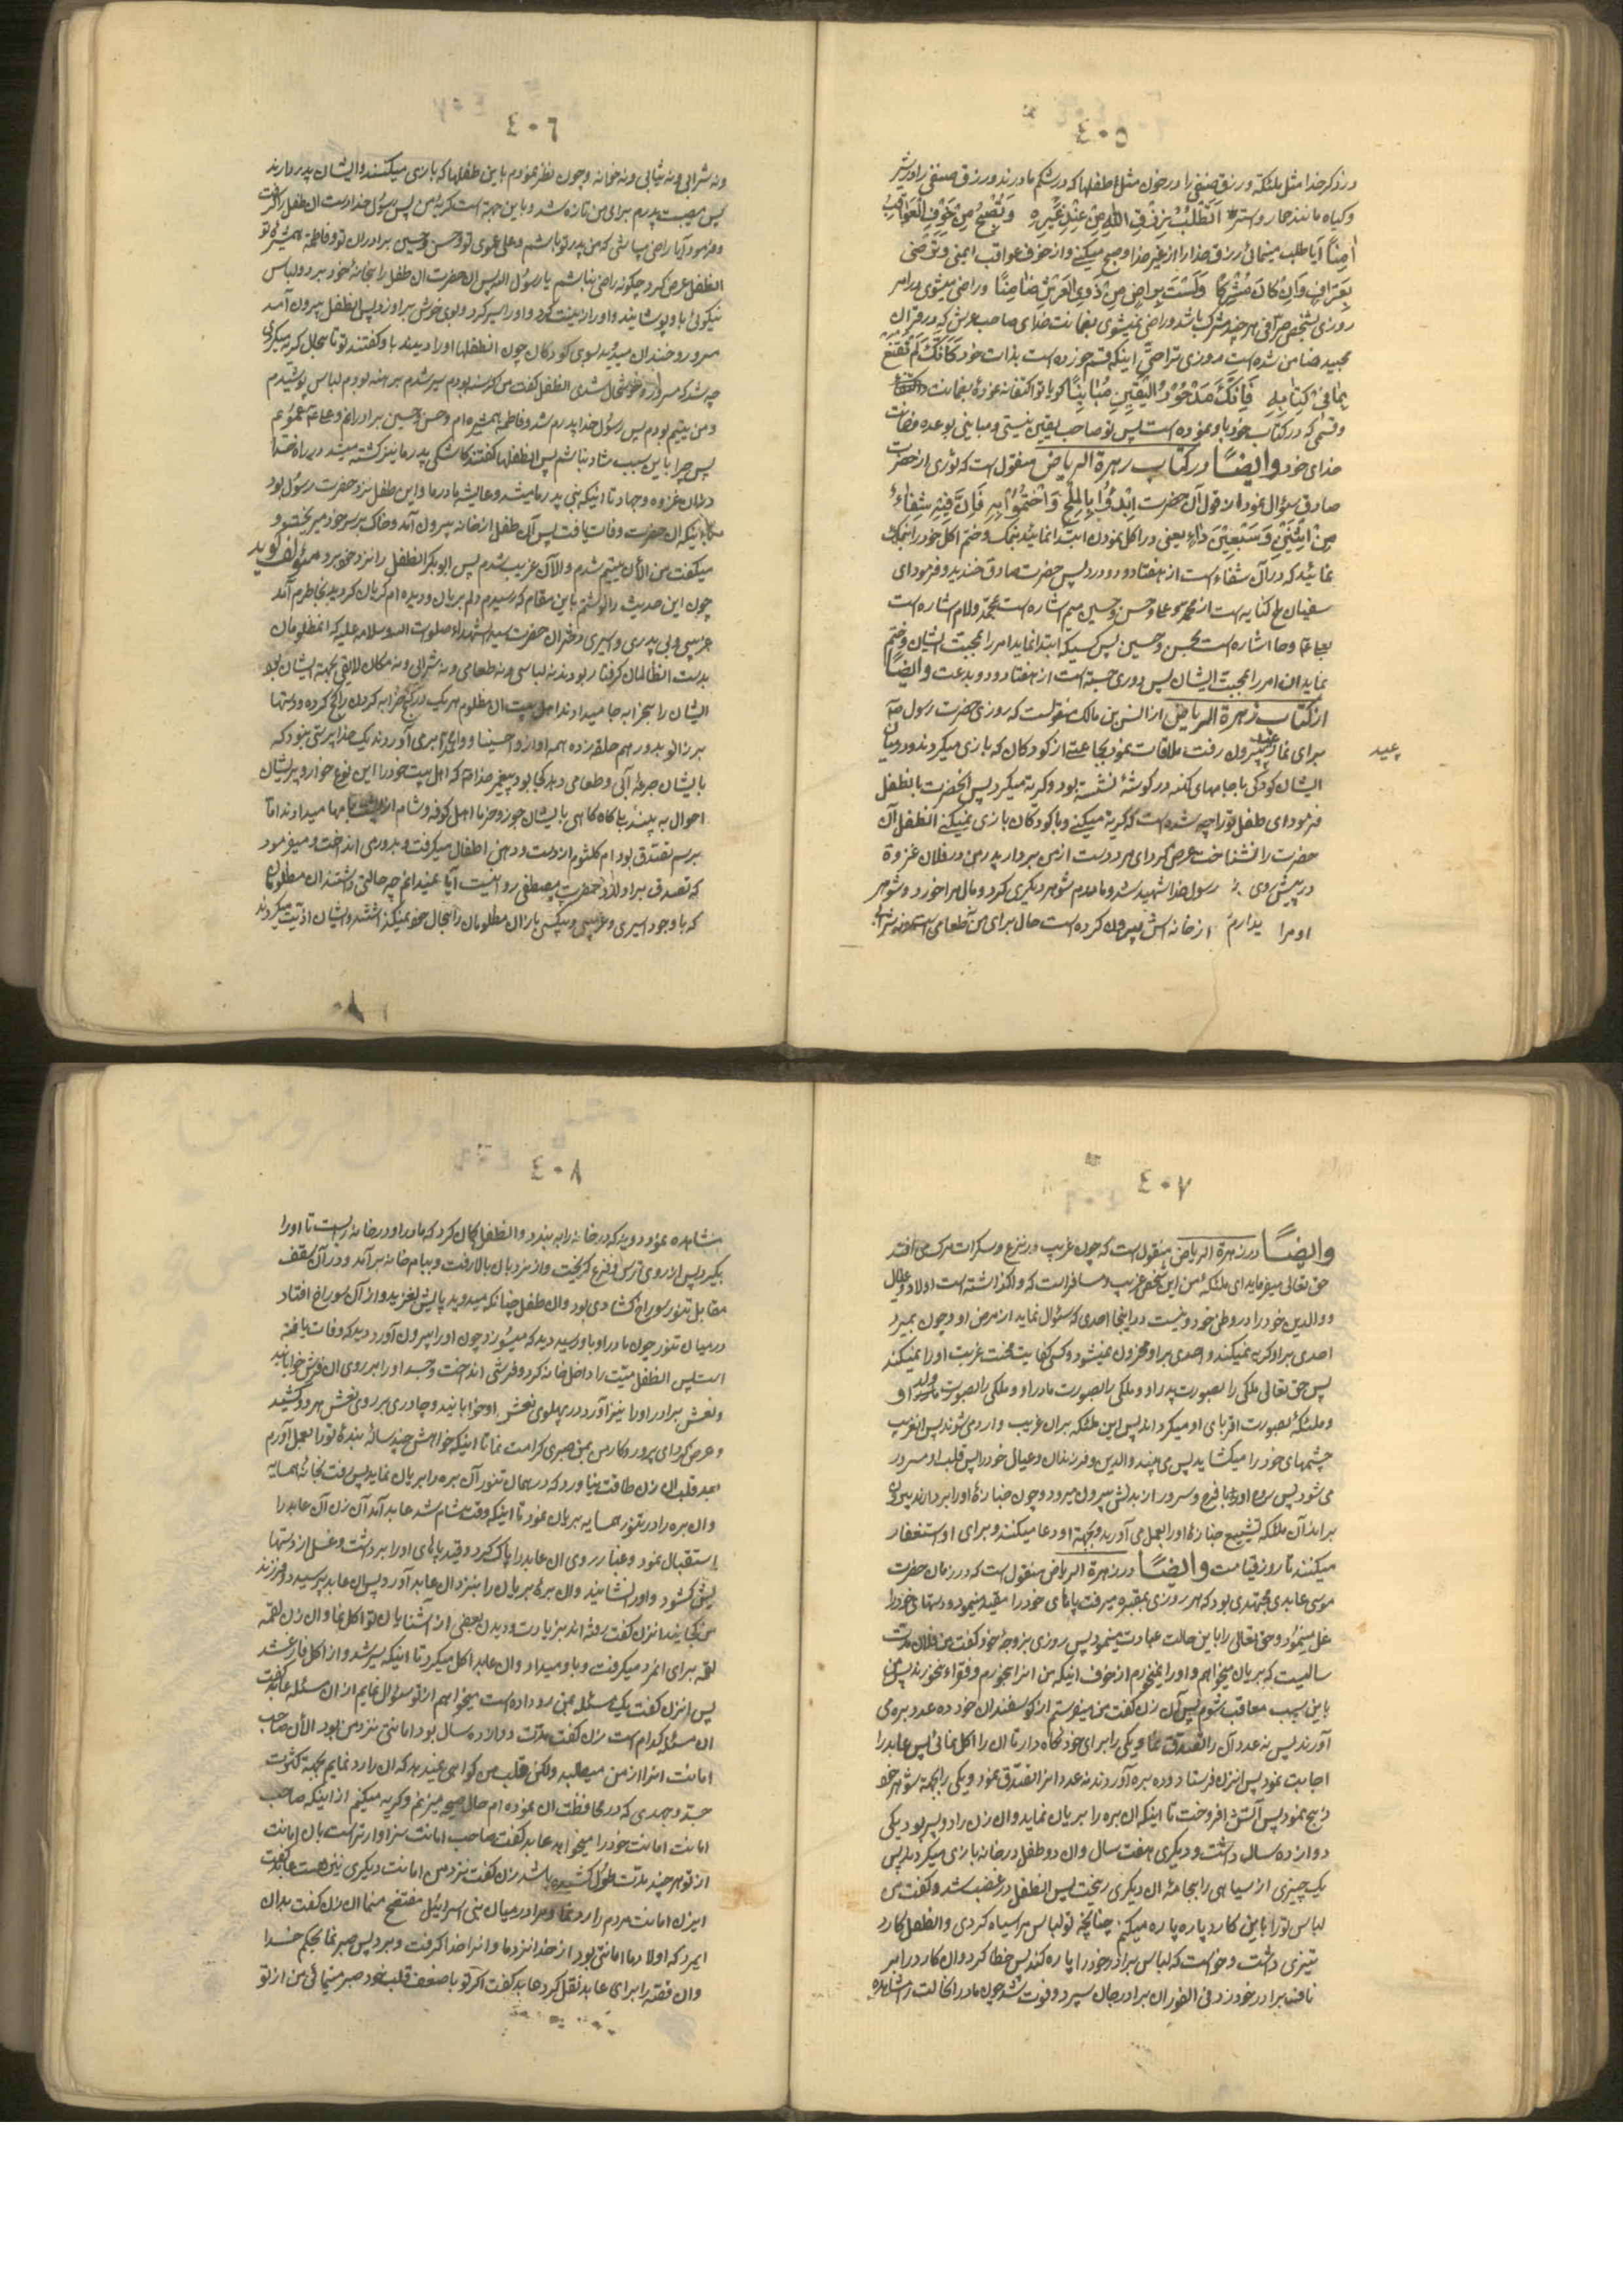 ٤٠٥
در ذکر خدا مثل ملئکه و رزق صنفی را در خون مثل اطفالها که در شکم مادرند و رزق صنفی را در شیر
و کیاه مانند حار و ستر اَتَطْلُبُ رِزْقَ اللّهِ مِنْ عِنْدِ غَیْرِهِ وَ تُصْبِحُ مِنْ خَوْفِ الْعَوَاقِبِ
اٰمِنًا آیا طلب مینمائی رزق خدا را از غیر خدا و صبح میکنی و از خوف عواقب ایمنی وَ تَرْضَی
بِصَرَّافٍ وَ اِنْ کَانَ مُشْرِکًا وَ لَسْتَ بِرَاضٍ مِنْ ذَوِی الْعَرْشِ ضَامِنًا و راضی میشوی در امر
روزی بشخص صرافی هر چند مشرک باشد و راضی نمیشوی بضمانت خدای صاحب عرش که در قران
مجید ضامن شده است روزی ترا حتی اینکه قسم خورده است بذات خود کَاَنَّکَ لَمْ تَقْنَعْ
بِمَا فِی کِتَابِهِ فَاِنَّکَ مَدْخُوْلُ الْیَقِینِ مُبَایِنًا کویا تو اکتفا نه نموده بضمانت
و قسمی که در کتاب خود باو نموده است پس تو صاحب یقین نیستی و مباینی بوعده و ضمانت
خدای خود وایضًا در کتاب زهرة الریاض منقول است که ثوری از حضرت
صادق سؤال نمود از قول آن حضرت اِبْدَؤُا بِالْمِلْحِ وَ اخْتِمُوْا بِهِ فَاِنَّ فِیْهِ شِفَاءً
مِنْ اِثْنَیْنِ وَ سَبْعِیْنَ دَاءٍ یعنی در اکل نمودن ابتدا نمائید بنمک و ختم اکل خود را بنمک
نمائید که در آن شفاء است از هفتاد و دو درد پس حضرت صادق خندید و فرمود ای
سفیان ملح کنایه است از محمد و علی و حسن و حسین میم اشاره است بمحمد و لام اشاره است
بعلی و حا اشاره است بحسن و حسین پس کسیکه ابتدا نماید امر را بمحبت ایشان و ختم
نماید ان امر را بمحبت ایشان پس دوری جسته است از هفتاد و دو بدعت وایضًا
از کتاب زهرة الریاض از انس بن مالک منقولست که روزی حضرت رسول
برای نماز عید بیرون رفت ملاقات نمود بجماعتی از کودکان که بازی میکردند و در میان
عید
ایشان کودکی با جامهای کهنه در کوشهٔ نشسته بود و کریه میکرد پس انحضرت بانطفل
فرمود ای طفل تو را چه شده است که کریه میکنی و با کودکان بازی نمیکنی انطفل آن
حضرت را نشناخت عرض کرد ای مرد دست از من بردار پدر من در فلان غزوة
در پیش روی رسول خدا شهید شد و مادرم شوهر دیکری کرد و مال مرا خورد و شوهر
او مرا از خانه اش بیرون کرده است حال برای من نه طعامی است و نه شرابی
٤٠٦
و نه شرابی و نه ثیابی و نه خوانه و چون نظر نمودم باین طفلها که بازی میکنند و ایشان پدر دارند
پس مصیبت پدرم برای من تازه شد و باین جهة است کریهٔ من پس رسول خدا دست ان طفل را کرفت
و فرمود آیا راضی نباشی که من پدر تو باشم و علی عموی تو و حسن و حسین برادران تو و فاطمه همشیرهٔ تو
انطفل عرض کرد چکونه راضی نباشم یا رسول الله پس ان حضرت ان طفل را بخانهٔ خود برد و لباس
نیکوئی باو پوشانید و او را زینت کرد و او را سیر کرد و بوی خوش بر او زد پس انطفل بیرون آمد
مسرور و خندان میدوید بسوی کودکان چون انطفلها او را دیدند باو کفتند تو تا بحال کریه میکردی
چه شد که مسرور و خوشحال شدی انطفل کفت من کرسنه بودم سیر شدم برهنه بودم لباس پوشیدم
و من یتیم بودم پس رسول خدا پدرم شد و فاطمه همشیره ام و حسن و حسین برادرانم و علی عموم
پس چرا باین سبب شاد نباشم پس انطفلها کفتند کاشکی پدر ما نیز کشته میشد در راه خدا
در ان غزوه و جهاد تا اینکه نبی پدر ما میشد و عایشه مادر ما و این طفل نزد حضرت رسول بود
تا اینکه ان حضرت وفات یافت پس آن طفل از خانه بیرون آمد و خاک بر سر خود میریخت و
میکفت من الأن یتیم شدم و الأن غریب شدم پس ابوبکر انطفل را نزد خود برد مؤلف کوید
چون این حدیث را نوشتم باین مقام که رسیدم دلم بریان و دیده ام کریان کردید بخاطرم آمد
غریبی و بی پدری و اسیری دختران حضرت سید الشهداء صلوات الله و سلامه علیه که انمظلومان
بدست انظالمان کرفتار بودند نه لباسی و نه طعامی و نه شرابی و نه مکان لایقی بجهة ایشان بود
ایشان را بخرابه جا میدادند اهل بیت ان مظلوم هر یک در کنج خرابه کردن را کج کرده و دستها
بر زانو بدور هم حلقه زده همه اواز وا حسینا و وا می آوردند یک خدا پرستی نبود که
بایشان جرعهٔ آبی و طعامی دهد کجا بود پیغمبر خدا که اهل بیت خود را این نوع خوار و پریشان
احوال به بیند بلی کاه کاهی بایشان جوز و خرما اهل کوفه و شام از بامها میدادند اما
برسم تصدق بود ام کلثوم از دست و دهن اطفال میکرفت و بدور می انداخت و میفرمود
که تصدق بر اولاد حضرت مصطفی روا نیست آیا نمیدانم چه حالتی داشتند ان مظلومان
که با وجود اسیری و غریبی و بیکسی باز ان مظلومان را بحال خود نمیکذاشتند و ایشان اذیت میکردند
٤٠٧
وایضًا در زهرة الریاض منقول است که چون غریب در نزع و سکرات مرک می افتد
حق تعالی میفرماید ای ملئکهٔ من این شخص غریب و مسافر است که واکذاشته است اولاد و عیال
و والدین خود را در وطن خود و نیست در اینجا احدی که سئوال نماید از مرض او و چون بمیرد
احدی بر او کریه نمیکند و احدی بر او محزون نمیشود و کسی کفایت محنت غربت او را نمیکند
پس حق تعالی ملکی را بصورت پدر او و ملکی را بصورت مادر او و ملکی را بصورت ولد او
و ملئکهٔ بصورت اقربای او میکرداند پس این ملئکه بر ان غریب وارد می شوند پس انغریب
چشمهای خود را میکشاید پس می بیند والدین و فرزندان و عیال خود را پس قلب او مسرور
می شود پس روح او با فرح و سرور از بدنش بیرون میرود و چون جنازهٔ او را بردارند بیرون
برند آن ملئکه تشییع جنازهٔ او را بعمل می آورند و بجهة او دعا میکنند و برای او استغفار
میکنند تا روز قیامت وایضًا در زهرة الریاض منقول است که در زمان حضرت
موسی عابدی مجتهدی بود که هر روزی بمقبره میرفت پاهای خود را مقید مینمود و دستهای خود را
غل مینمود و حق تعالی را باین حالت عبادت مینمود پس روزی بزوجهٔ خود کفت من فلان مدت
سالیست که بریان میخواهم و او را نمیخورم از خوف اینکه من انرا بخورم و فقراء نخورند پس من
باین سبب معاقب شوم پس آن زن کفت من میفرستم از کوسفندان خود ده عدد بره می
آورند پس نه عدد آن را تصدق نما و یکی را برای خود نکاه دار تا ان را اکل نمائی پس عابد را
اجابت نمود پس انزن فرستاد و ده بره آوردند نه عدد انرا تصدق نمود و یکی را بجهة شوهر خود
ذبح نمود پس آتش افروخت تا اینکه ان بره را بریان نماید و ان زن را دو پسر بود یکی
دوازده سال داشت و دیکری هفت سال و ان دو طفل در خانه بازی میکردند پس
یک چیزی از سیاهی را بجامهٔ ان دیکری ریخت پس انطفل در غضب شد و کفت من
لباس تو را باین کارد پاره پاره میکنم چنانچه تو لباس مرا سیاه کردی و انطفل کارد
تیزی داشت و خواست که لباس برادر خود را پاره کند پس خطا کرد و ان کارد را بر
ناف برادر خود زد فی الفور ان برادر جان سپرد و فوت شد چون مادر انحالت را مشاهده
٤٠٨
مشاهده نمود دوید که در خانه را به بندد و انطفل کمان کرد که مادر او در خانه را بست تا او را
بکیرد پس از روی ترس و فزع کریخت و از نردبان بالا رفت و ببام خانه بر آمد و در آن سقف
مقابل تنور سوراخ کشادی بود و ان طفل چنانکه میدوید پایش لغزید و از آن سوراخ افتاد
در میان تنور چون مادر او باو رسید دید که میسوزد چون او را بیرون آورد دید که وفات یافته
است پس انطفل میت را داخل خانه کرد و فرشی انداخت و جسد او را بر روی ان فرش خوابانید
و نعش برادر او را نیز آورد در پهلوی نعش او خوابانید و چادری بر روی نعش هر دو کشید
و عرض کرد ای پروردکار من بمن صبری کرامت نما تا اینکه خواهش چند سالهٔ بندهٔ تو را بعمل آورم
بعد قلب ان زن طاقت نیاورد که در همان تنور آن بره را بریان نماید پس رفت بخانهٔ همسایه
و ان بره را در تنور همسایه بریان نمود تا اینکه وقت شام شد عابد آمد آن زن آن عابد را
استقبال نمود و غبار روی ان عابد را پاک کرد و قید پاهای او را برداشت و غل از دستها
یش کشود و او را نشانید و ان برهٔ بریان را بنزد ان عابد آورد پس ان عابد پرسید دو فرزند
من کجایند انزن کفت رفته اند بزیارت و دیدن بعضی از آشنایان تو اکل نما و ان زن لقمه
لقمه برای انمرد میکرفت و باو میداد و ان عابد اکل میکرد تا اینکه سیر شد و از اکل فارغ شد
پس انزن کفت یک مسئله بمن رو داده است میخواهم از تو سئوال نمایم از ان مسئله عابد کفت
ان مسئله کدام است زن کفت مدت دوازده سال بود امانتی نزد من بود الأن صاحب
امانت انرا از من میطلبد ولکن قلب من کواهی نمیدهد که ان را رد نمایم بجهة کثرت
جد و جهدی که در محافظت ان نموده ام حال میزنم و کریه میکنم از اینکه صاحب
امانت امانت خود را میخواهد عابد کفت صاحب امانت سزاوارتر است بان امانت
از تو هر چند مدت طول کشیده باشد زن کفت نزد من امانت دیکری نیز هست عابد کفت
ایزن امانت مردم را رد نما و مرا در میان بنی اسرائیل مفتضح منما ان زن کفت بدان
ایمرد که اولاد ما امانتی بود از خدا نزد ما و انرا خدا کرفت و برد پس صبر نما بحکم خدا
و ان قصه را برای عابد نقل کرد عابد کفت اکر تو با ضعف قلب خود صبر مینمائی من از تو